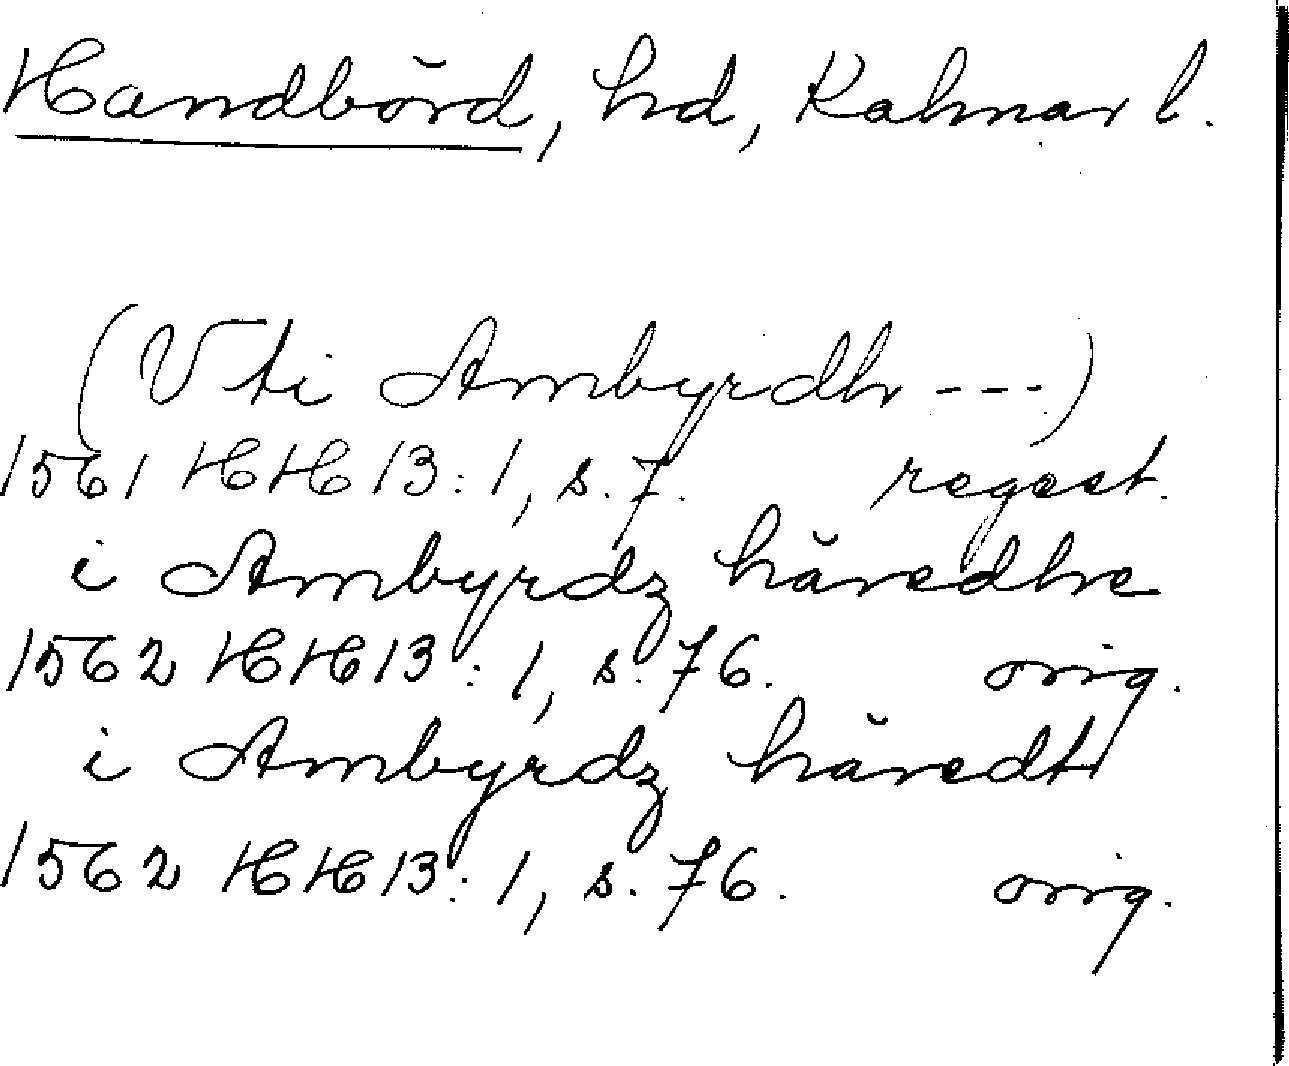 Handbörd, hd, Kalmar l.
(Vti Ambyrdh ---)
1561 HH 13:1, s. 7. regest.
i Ambyrdz häredhe
1562 HH 13:1, s. 76. orig.
i Ambyrdz häredh
1562 HH 13:1, s. 76. orig.